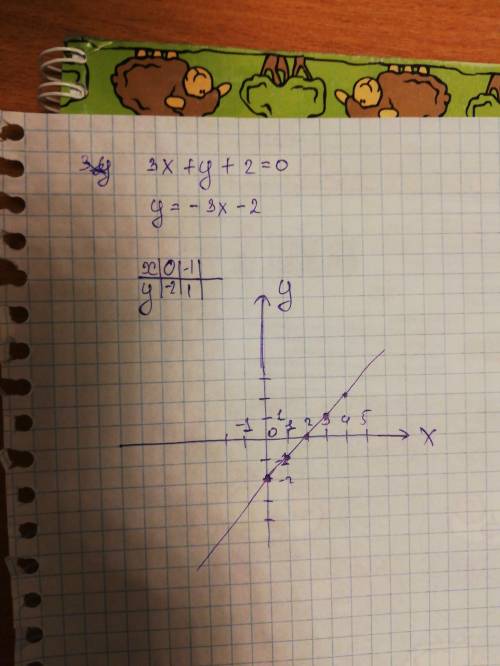 3y 3x + y + 2 = 0
y = -3x - 2
x | 0 | -1 |
y | -2 | 1 |
y
-1 0 1 2 3 4 5 x
1
-1
-2